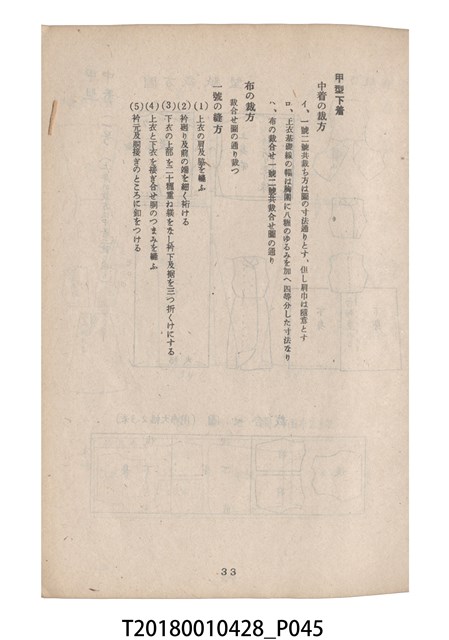 甲型下着
中着の裁方
イ、一號二號共裁ち方は圖の寸法通りとす、但し肩巾は隨意とす
ロ、上衣基礎線の幅は胸圍に八糎のゆるみを加へ四等分した寸法なり
ハ、布の裁合せ一號二號共裁合せ圖の通り
布の裁方
裁合せ圖の通り裁つ
一號の縫方
(1) 上衣の肩及脇を縫ふ
(2) 衿廻り及前の端を細く絎ける
(3) 下衣の上部を二十糎重ね襞をなし衿下及裾を三つ折くけにする
(4) 上衣と下衣を接ぎ合せ胴のつまみを縫ふ
(5) 衿元及胴接ぎのところに釦をつける
33
T20180010428_P045